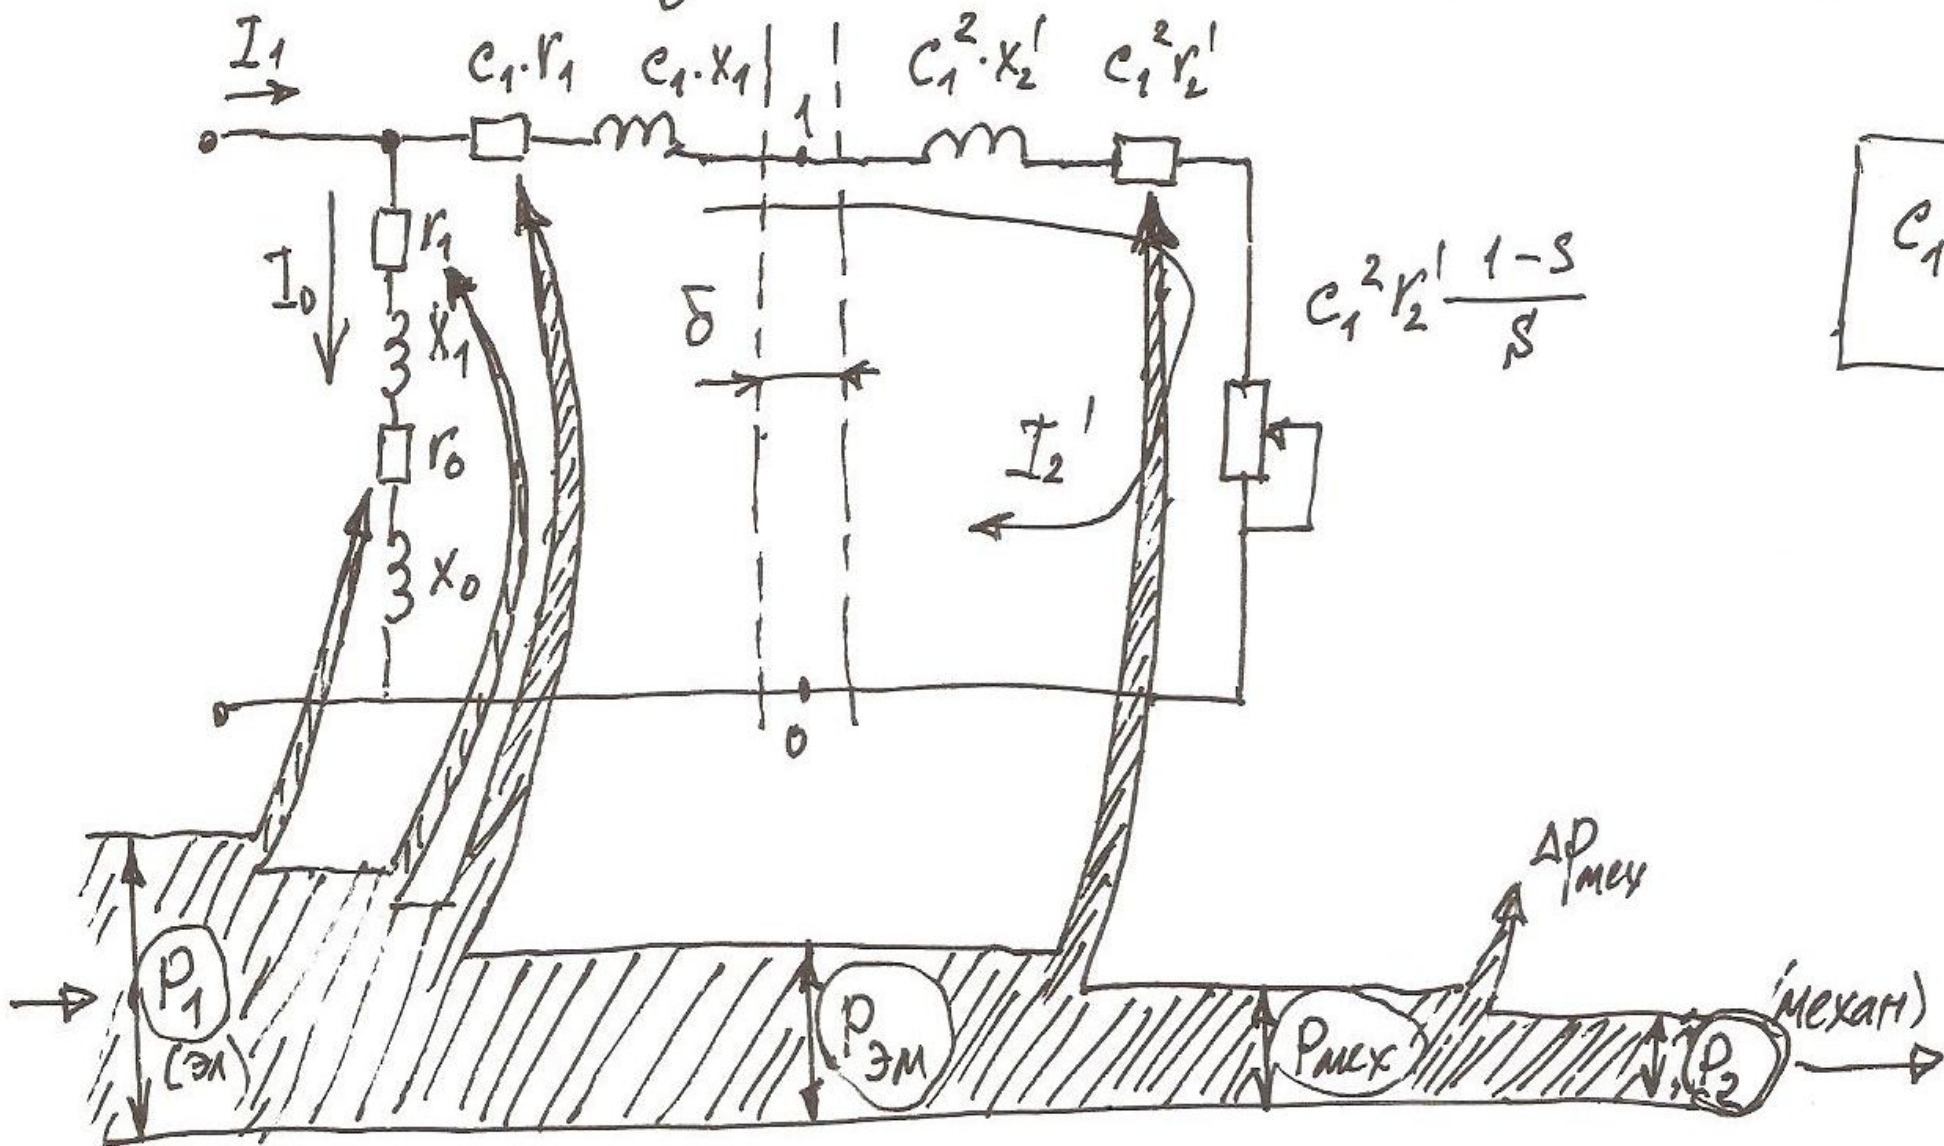 I₁
c₁·r₁ c₁·x₁ c₁²·x₂' c₁²r₂'
1
I₀
r₁
x₁
r₀
x₀
δ
I₂'
c₁²r₂' (1-s)/s
C₁
0
ΔPмех
P₁
(эл)
Pэм
Pмех
P₂
(механ)